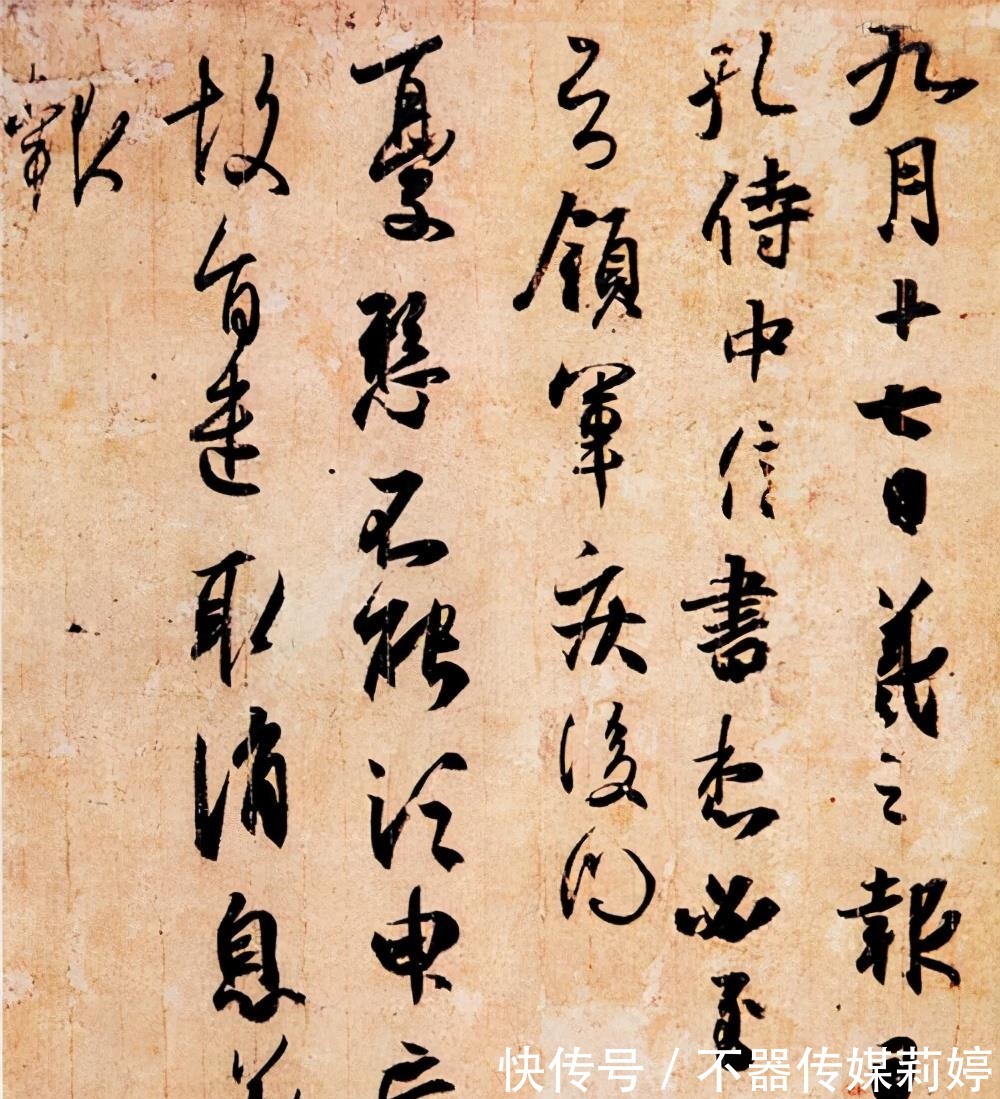 九月十七日羲之報
孔侍中信書想必至
不知領軍疾後問
憂懸不能須臾忘
故旨遣取消息羲
報
快传号 / 不器传媒莉婷